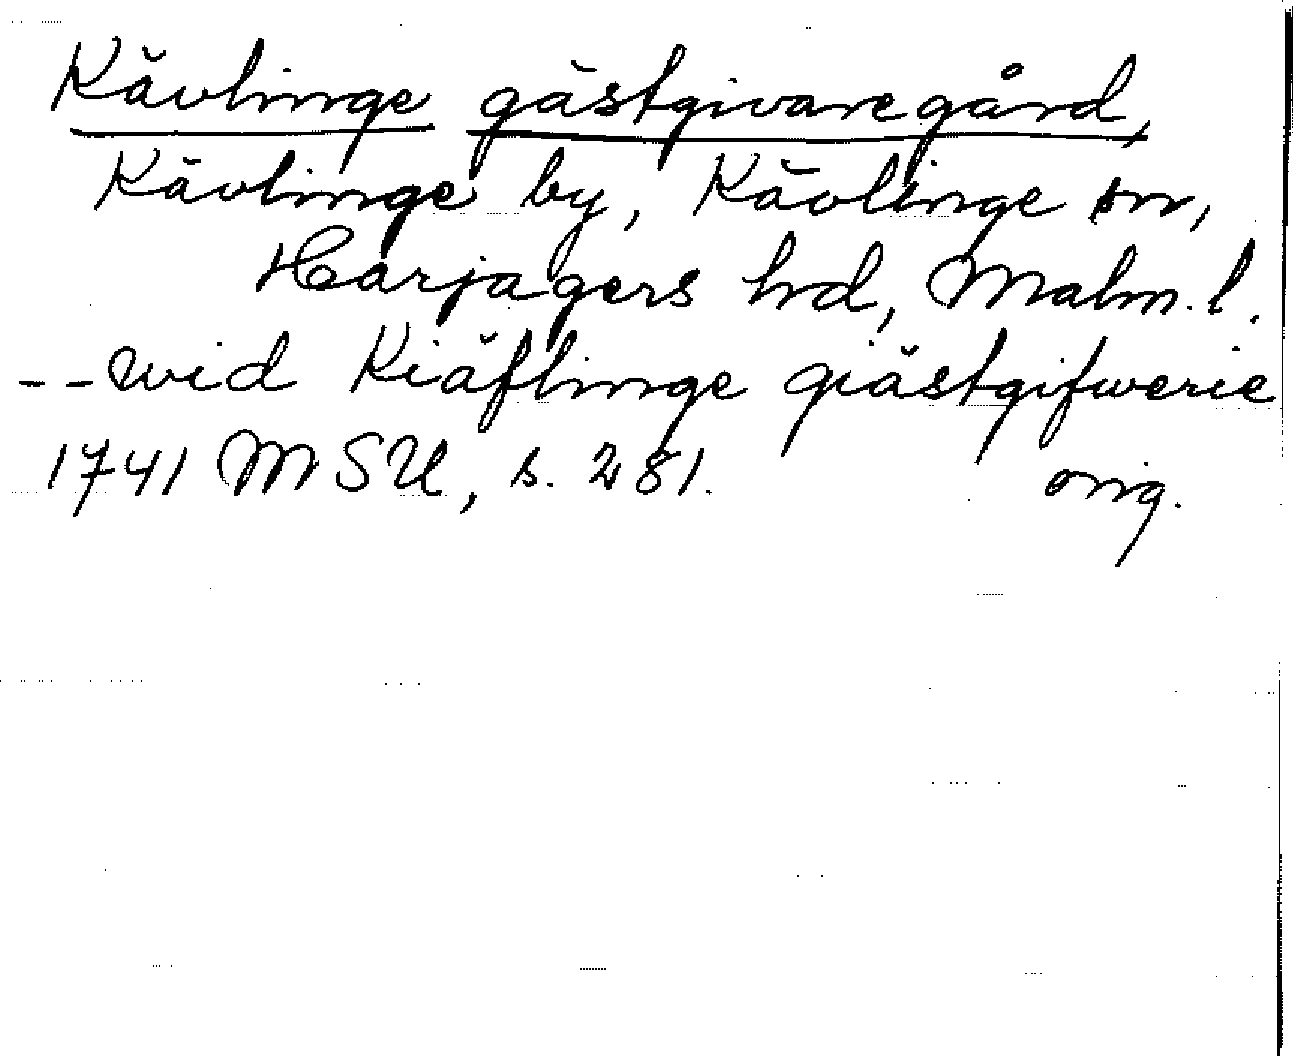 Kävlinge gästgivaregård,
Kävlinge by, Kävlinge sn,
Harjagers hd, Malm. l.
-- wid Kiäflinge giästgifwerie
1741 MSU, s. 281. orig.